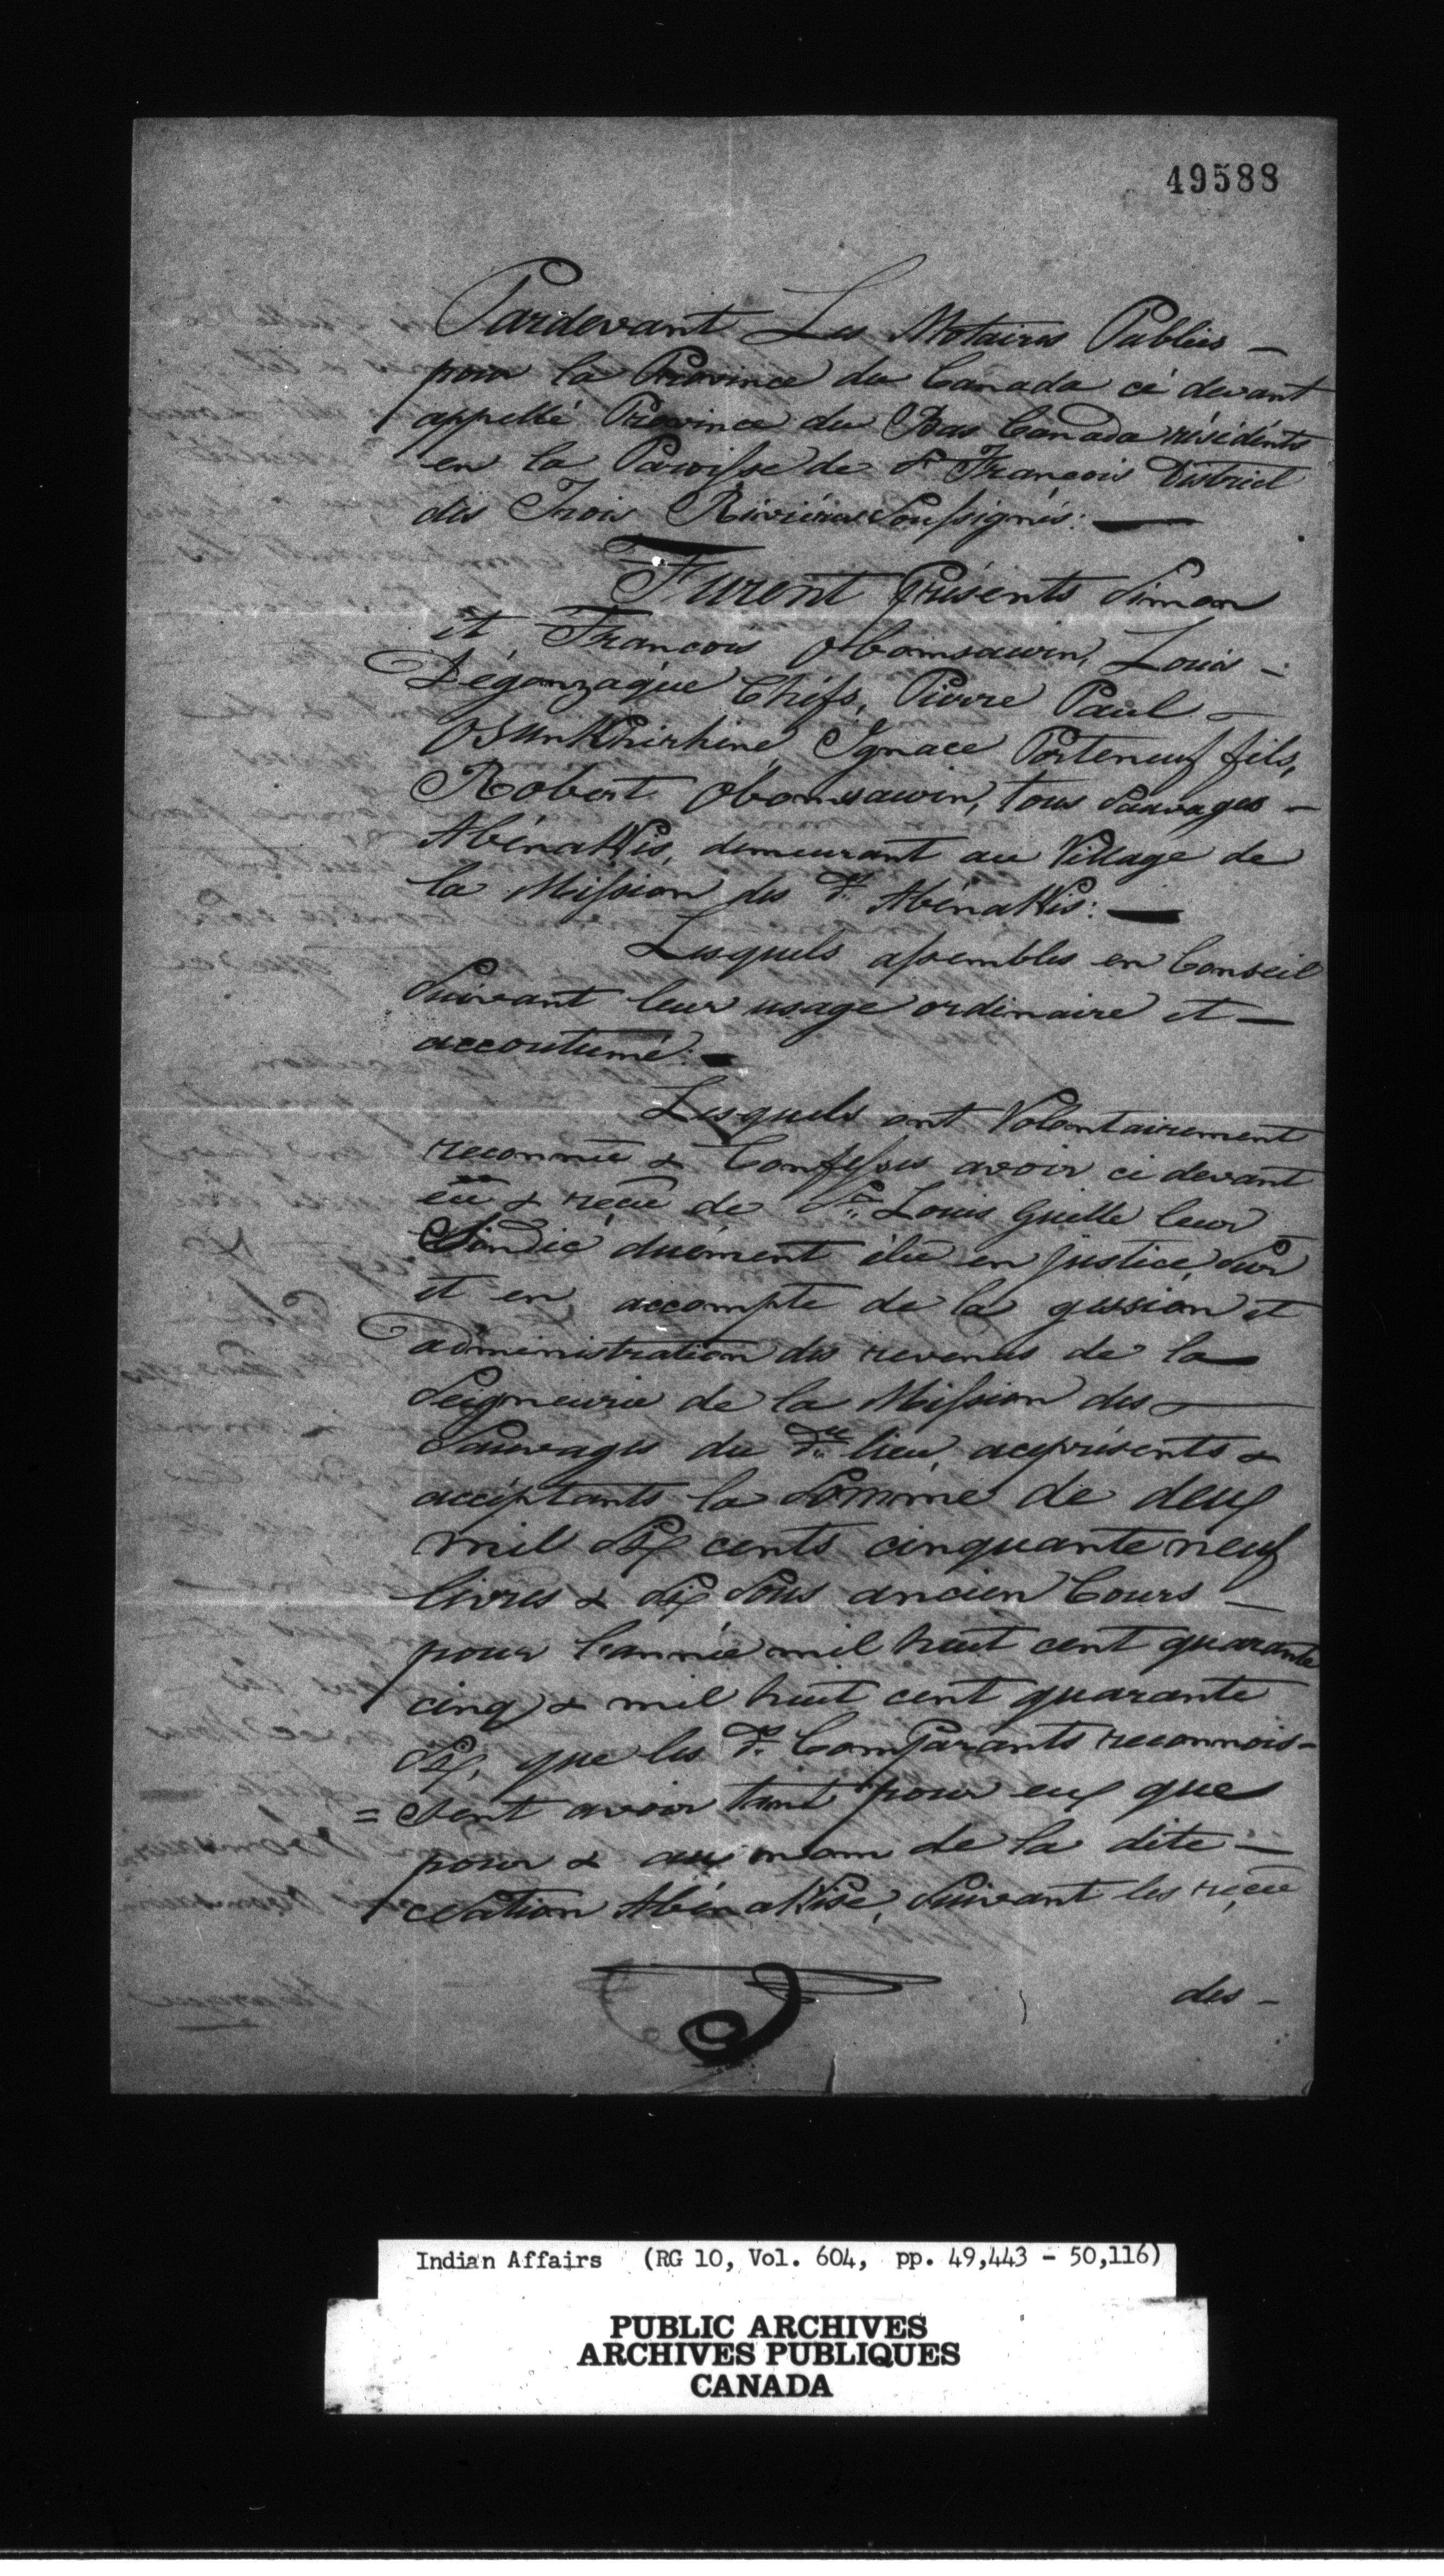 49588
Pardevant Les Notaires Publics —
pour la Province du Canada cé devant
appellé Province du Bas Canada résidents
en la Paroisse de St François District
des Trois Riviéres Soussignés: —
Furent Présents Simon
et Francois Obomsawin, Louis —
Dégonzagüe Chéfs, Pierre Paul —
OsunKhirhine, Ignace Porteneuf fils,
Robert Obomsawin, tous Sauvages —
AbénaKis, demeurant au Village de
la Mission des Dts AbénaKis: —
Lesquels assembles en Conseil
Suivant leur usage ordinaire et —
accoutumé: —
Lesquels ont Volontairement
reconnüe & Confesses avoir ci devant
eüe & reçüe de Sr. Louis Guille leur
Sindic duëment élüe en justice, Sur
et en accompte de la gession et
administration des revenus de la
Seigneurie de la Mission des —
Sauvages du Dt lieu, aceprésents &
acceptants la Somme de deux
mil Six cents cinquante neuf
livres & dix Sous ancien Cours —
pour l'année mil huit cent quarante
cinq & mil huit cent quarante
Six, que les Dts Comparants reconnois-
= Sent avoir tant pour eux que
pour & au nom de la dite —
Nation AbénaKise, Suivant les reçüe
des —
Indian Affairs (RG 10, Vol. 604, pp. 49,443 - 50,116)
PUBLIC ARCHIVES
ARCHIVES PUBLIQUES
CANADA